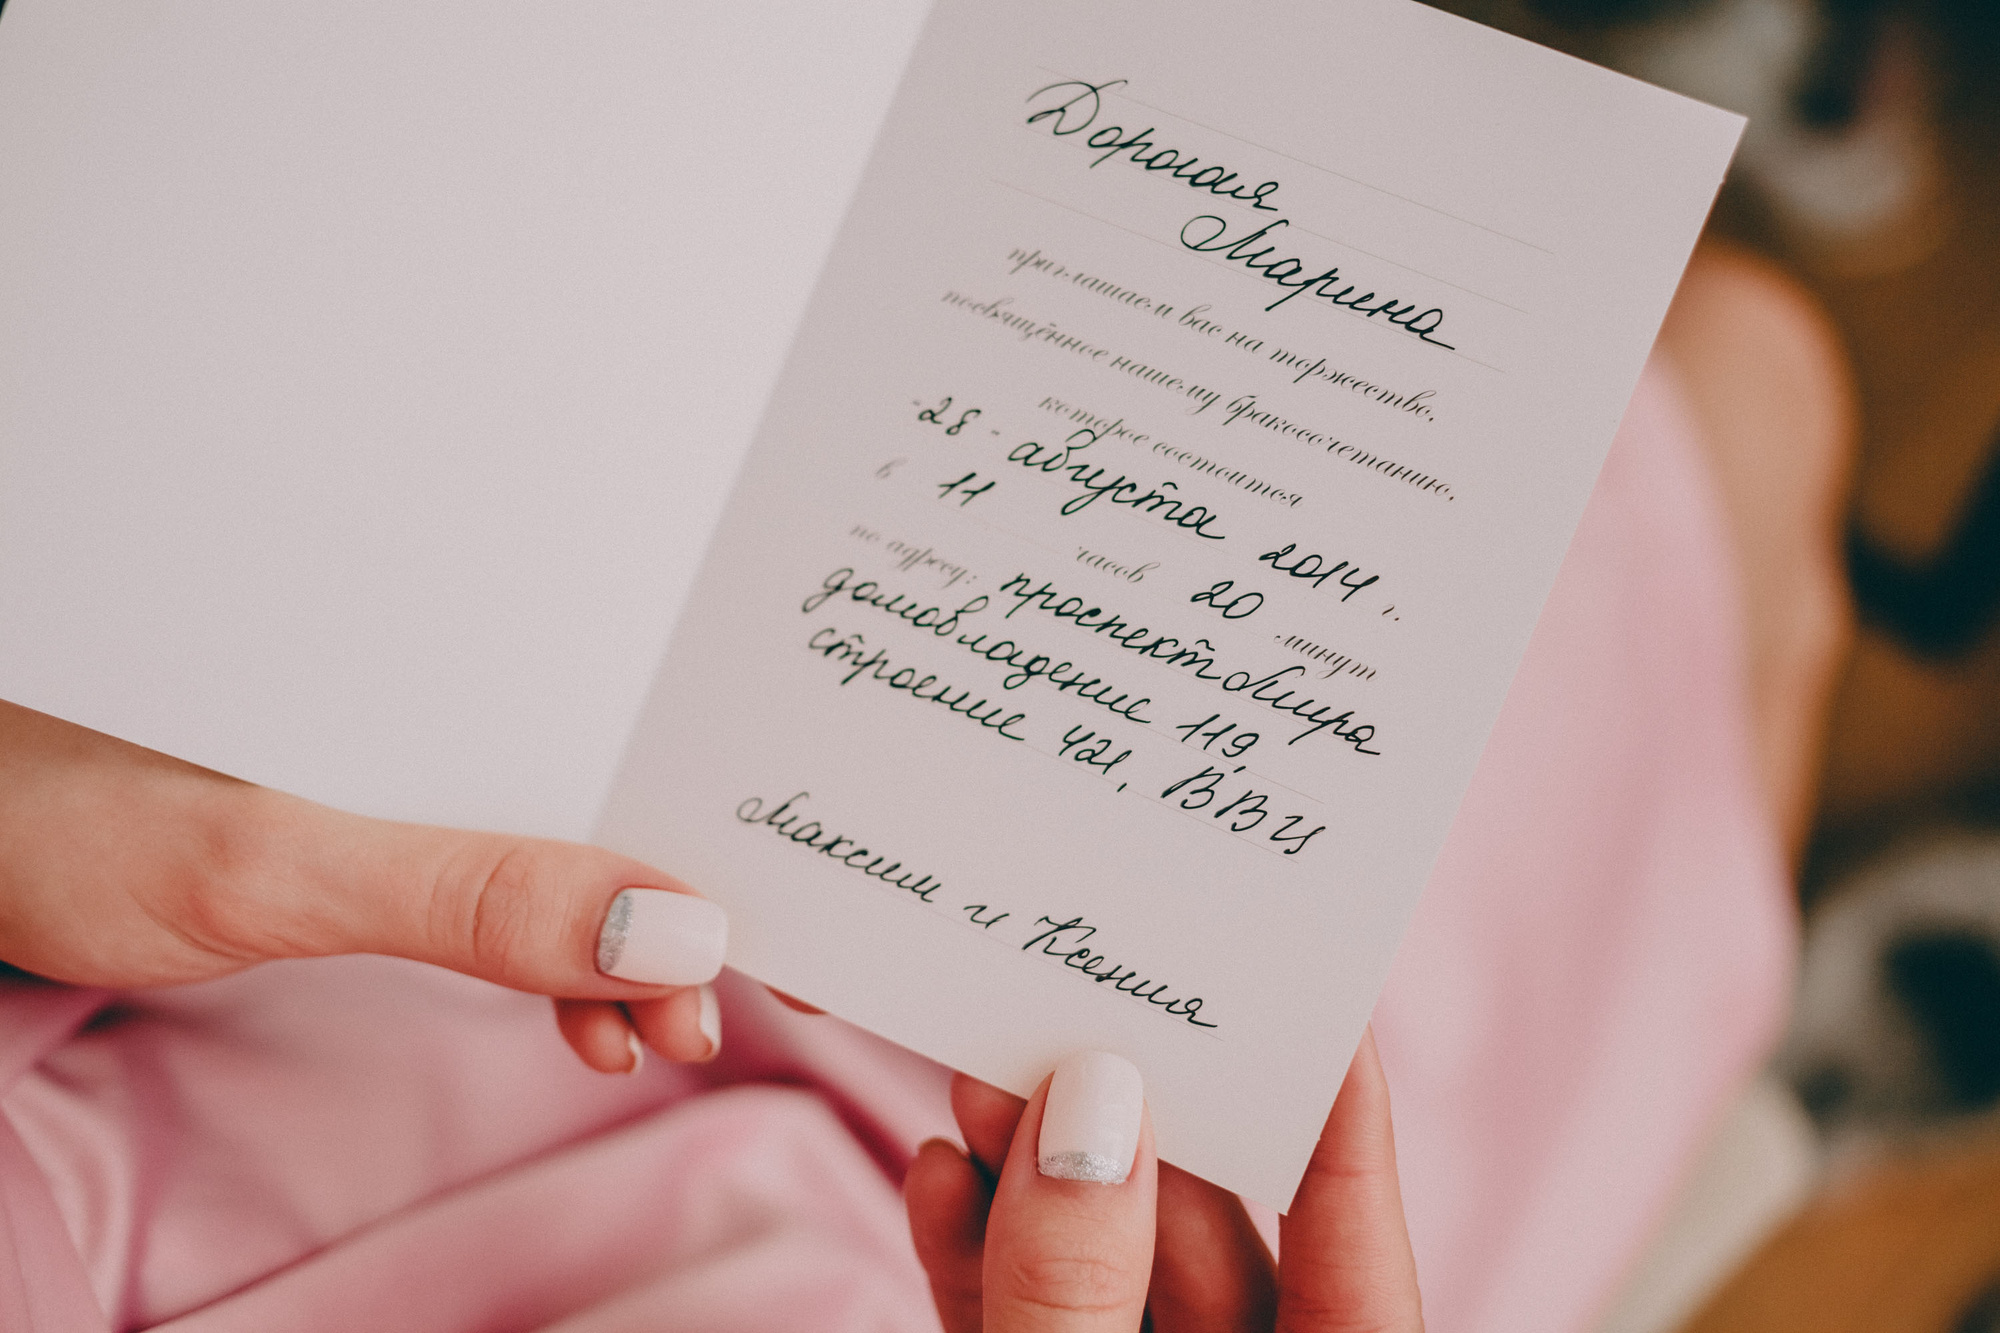 Дорогая
Марина
приглашаем вас на торжество,
посвящённое нашему бракосочетанию,
которое состоится
"28" августа 2014 г.
в 11 часов 20 минут
по адресу: проспект Мира
домовладение 119,
строение 421, ВВЦ
Максим и Ксения